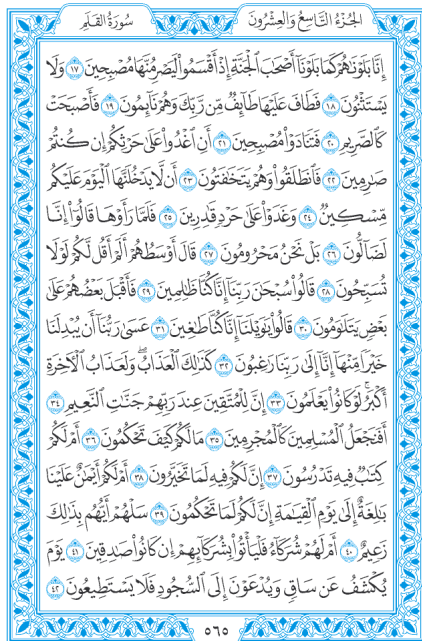 سُورَةُ القَلَمِ
الجُزْءُ التَّاسِعُ وَالعِشْرُونَ
إِنَّا بَلَوْنَٰهُمْ كَمَا بَلَوْنَآ أَصْحَٰبَ ٱلْجَنَّةِ إِذْ أَقْسَمُوا۟ لَيَصْرِمُنَّهَا مُصْبِحِينَ ١٧ وَلَا
يَسْتَثْنُونَ ١٨ فَطَافَ عَلَيْهَا طَآئِفٌ مِّن رَّبِّكَ وَهُمْ نَآئِمُونَ ١٩ فَأَصْبَحَتْ
كَٱلصَّرِيمِ ٢٠ فَتَنَادَوْا۟ مُصْبِحِينَ ٢١ أَنِ ٱغْدُوا۟ عَلَىٰ حَرْثِكُمْ إِن كُنتُمْ
صَٰرِمِينَ ٢٢ فَٱنطَلَقُوا۟ وَهُمْ يَتَخَٰفَتُونَ ٢٣ أَن لَّا يَدْخُلَنَّهَا ٱلْيَوْمَ عَلَيْكُم
مِّسْكِينٌ ٢٤ وَغَدَوْا۟ عَلَىٰ حَرْدٍ قَٰدِرِينَ ٢٥ فَلَمَّا رَأَوْهَا قَالُوٓا۟ إِنَّا
لَضَآلُّونَ ٢٦ بَلْ نَحْنُ مَحْرُومُونَ ٢٧ قَالَ أَوْسَطُهُمْ أَلَمْ أَقُل لَّكُمْ لَوْلَا
تُسَبِّحُونَ ٢٨ قَالُوا۟ سُبْحَٰنَ رَبِّنَآ إِنَّا كُنَّا ظَٰلِمِينَ ٢٩ فَأَقْبَلَ بَعْضُهُمْ عَلَىٰ
بَعْضٍ يَتَلَٰوَمُونَ ٣٠ قَالُوا۟ يَٰوَيْلَنَآ إِنَّا كُنَّا طَٰغِينَ ٣١ عَسَىٰ رَبُّنَآ أَن يُبْدِلَنَا
خَيْرًا مِّنْهَآ إِنَّآ إِلَىٰ رَبِّنَا رَٰغِبُونَ ٣٢ كَذَٰلِكَ ٱلْعَذَابُ ۖ وَلَعَذَابُ ٱلْءَاخِرَةِ
أَكْبَرُ ۚ لَوْ كَانُوا۟ يَعْلَمُونَ ٣٣ إِنَّ لِلْمُتَّقِينَ عِندَ رَبِّهِمْ جَنَّٰتِ ٱلنَّعِيمِ ٣٤
أَفَنَجْعَلُ ٱلْمُسْلِمِينَ كَٱلْمُجْرِمِينَ ٣٥ مَا لَكُمْ كَيْفَ تَحْكُمُونَ ٣٦ أَمْ لَكُمْ
كِتَٰبٌ فِيهِ تَدْرُسُونَ ٣٧ إِنَّ لَكُمْ فِيهِ لَمَا تَخَيَّرُونَ ٣٨ أَمْ لَكُمْ أَيْمَٰنٌ عَلَيْنَا
بَٰلِغَةٌ إِلَىٰ يَوْمِ ٱلْقِيَٰمَةِ إِنَّ لَكُمْ لَمَا تَحْكُمُونَ ٣٩ سَلْهُمْ أَيُّهُم بِذَٰلِكَ
زَعِيمٌ ٤٠ أَمْ لَهُمْ شُرَكَآءُ فَلْيَأْتُوا۟ بِشُرَكَآئِهِمْ إِن كَانُوا۟ صَٰدِقِينَ ٤١ يَوْمَ
يُكْشَفُ عَن سَاقٍ وَيُدْعَوْنَ إِلَى ٱلسُّجُودِ فَلَا يَسْتَطِيعُونَ ٤٢
٥٦٥